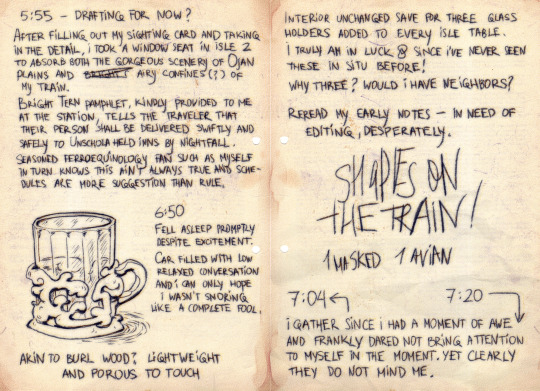 5:55 – DRAFTING FOR NOW?
AFTER FILLING OUT MY SIGHTING CARD AND TAKING
IN THE DETAIL, I TOOK A WINDOW SEAT IN ISLE 2
TO ABSORB BOTH THE GORGEOUS SCENERY OF OJAN
PLAINS AND BRIGHT AIRY CONFINES(?) OF
MY TRAIN.
BRIGHT TERN PAMPHLET, KINDLY PROVIDED TO ME
AT THE STATION, TELLS THE TRAVELER THAT
THEIR PERSON SHALL BE DELIVERED SWIFTLY AND
SAFELY TO UNSCHOLA HELD INNS BY NIGHTFALL.
SEASONED FERROEQUINOLOGY FAN SUCH AS MYSELF
IN TURN KNOWS THIS AIN'T ALWAYS TRUE AND SCHE-
DULES ARE MORE SUGGESTION THAN RULE.
6:50
FELL ASLEEP PROMPTLY
DESPITE EXCITEMENT.
CAR FILLED WITH LOW
RELAXED CONVERSATION
AND I CAN ONLY HOPE
I WASN'T SNORING
LIKE A COMPLETE FOOL.
AKIN TO BURL WOOD? LIGHTWEIGHT
AND POROUS TO TOUCH
INTERIOR UNCHANGED SAVE FOR THREE GLASS
HOLDERS ADDED TO EVERY ISLE TABLE.
I TRULY AM IN LUCK & SINCE I'VE NEVER SEEN
THESE IN SITU BEFORE!
WHY THREE? WOULD I HAVE NEIGHBORS?
REREAD MY EARLY NOTES – IN NEED OF
EDITING, DESPERATELY.
SHAPES ON
THE TRAIN!
1 MASKED 1 AVIAN
7:04 7:20
I GATHER SINCE I HAD A MOMENT OF AWE
AND FRANKLY DARED NOT BRING ATTENTION
TO MYSELF IN THE MOMENT. YET CLEARLY
THEY DO NOT MIND ME.